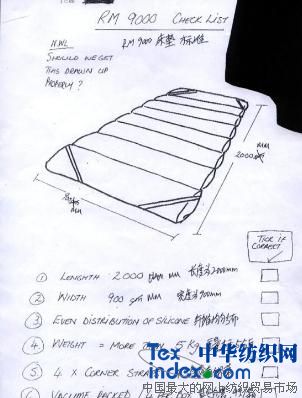 RM 9000 CHECK LIST
NWL
RM 9000 床垫 标准
SHOULD WE GET
THIS DRAWN UP
PROPERLY?
2000 MM
MM
TICK IF
CORRECT
① LENGHTH 2000 MM 长度为2000mm
② WIDTH 900 MM 宽度为900mm
③ EVEN DISTRIBUTION OF SILICONE
④ WEIGHT = MORE THAN 5 Kg
⑤ 4 X CORNER
VACUUM PACKED
Tex 中华纺织网
index.com
中国最大的网上纺织贸易市场